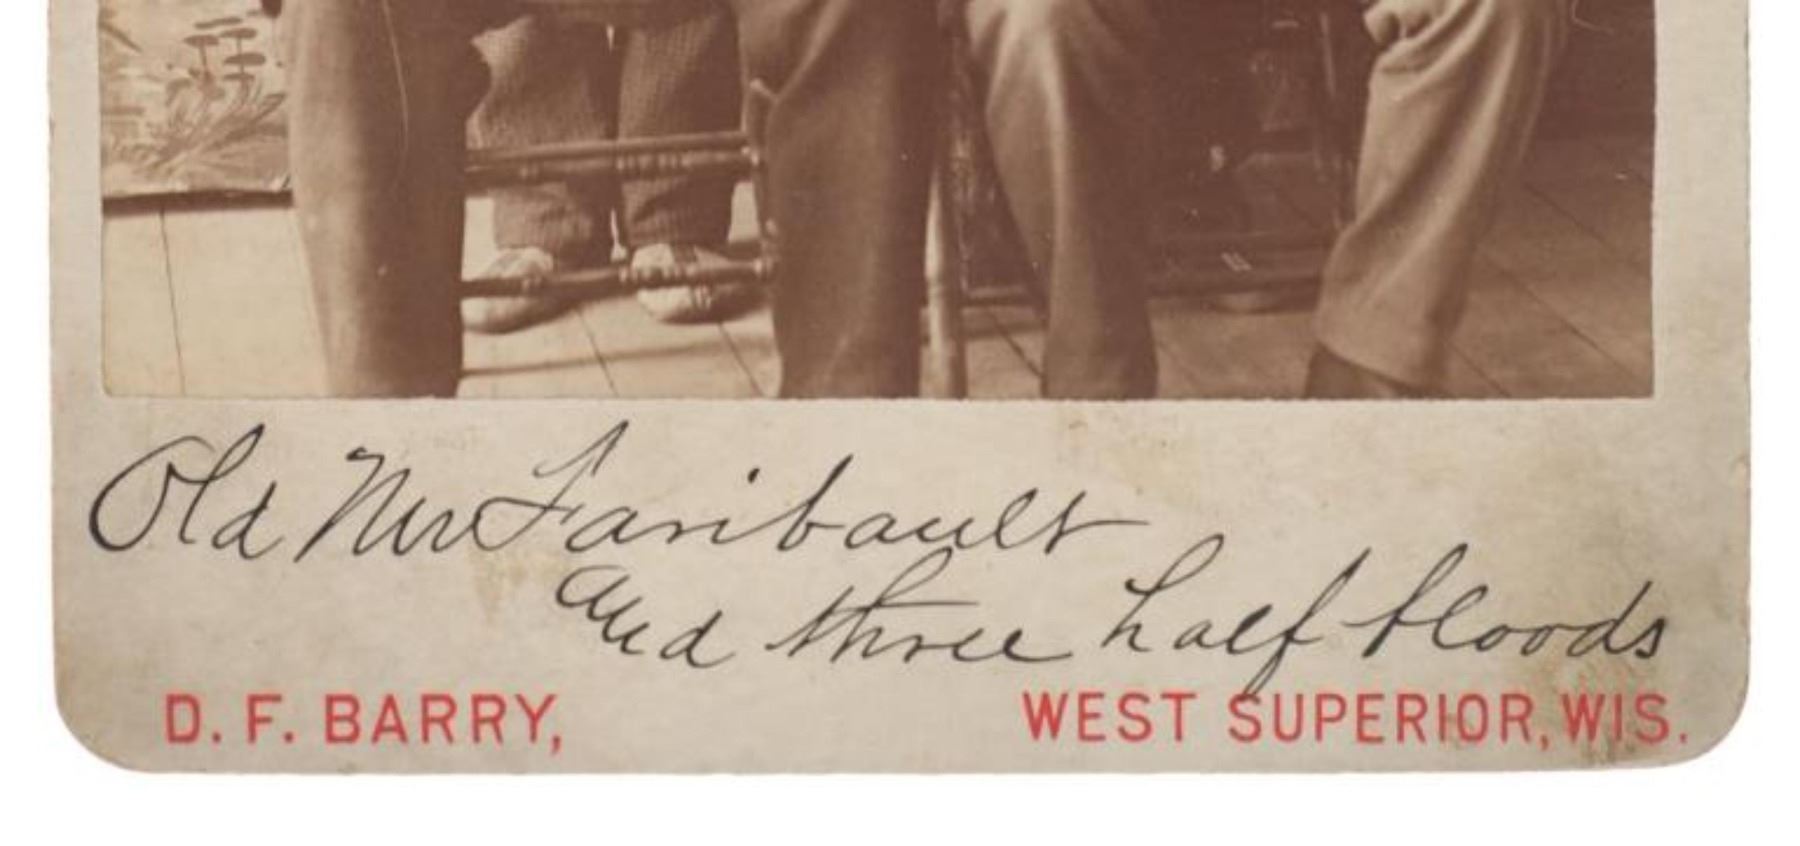 Old Mr Faribault
and three half bloods
D. F. BARRY, WEST SUPERIOR, WIS.